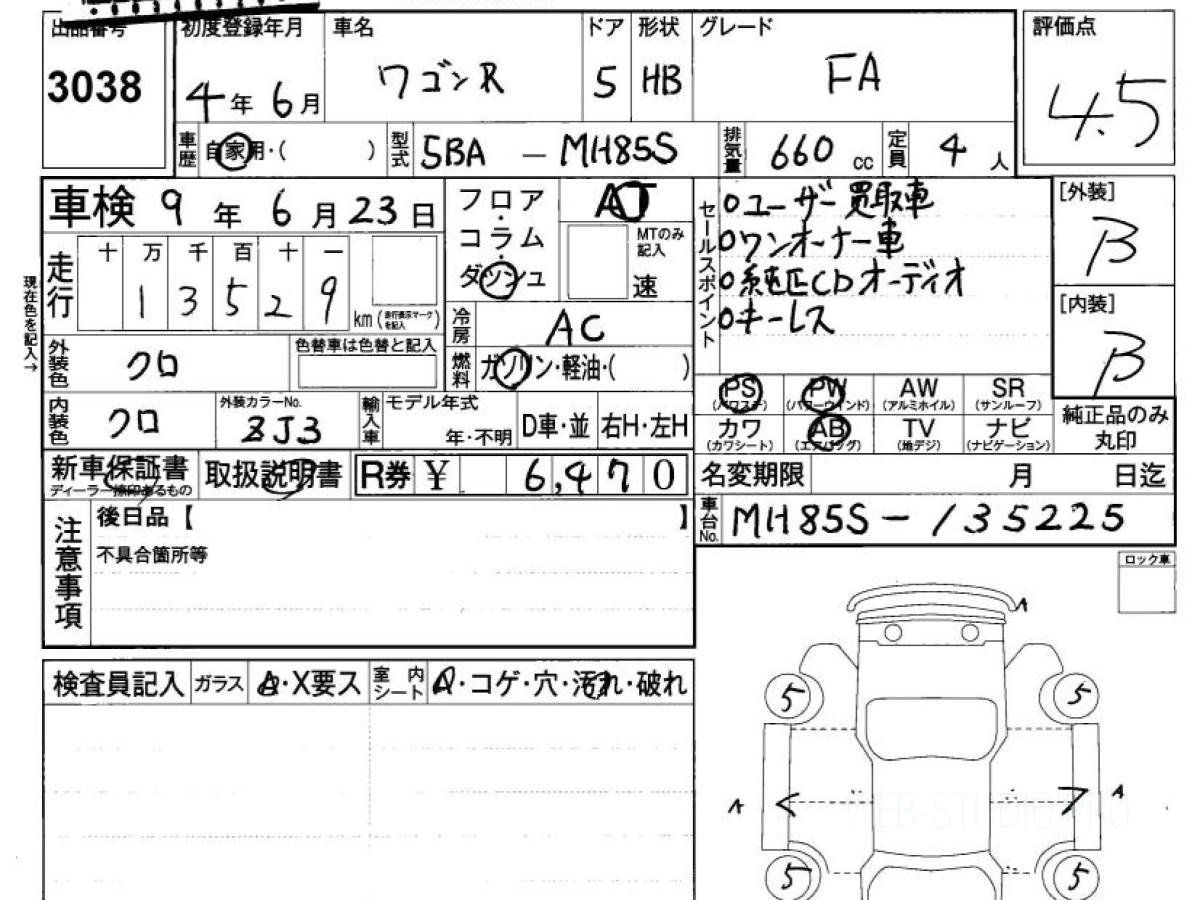 出品番号 初度登録年月 車名 ドア 形状 グレード 評価点
3038 4年6月 ワゴンR 5 HB FA 4.5
車歴 自家用・( ) 型式 5BA - MH85S 排気量 660 cc 定員 4 人
車検 9年6月23日
フロア・コラム・ダッシュ
AT
MTのみ記入
速
セールスポイント
○ユーザー買取車
○ワンオーナー車
○純正CDオーディオ
○キーレス
[外装]
B
[内装]
B
現在色を記入→
走行 十 万 千 百 十 一
1 3 5 2 9 km (走行表示マークを記入)
冷房 AC
外装色 クロ 色替車は色替と記入
燃料 ガソリン・軽油・( )
内装色 クロ 外装カラーNo. ZJ3
輸入車 モデル年式 年・不明 D車・並 右H・左H
PS (パワステ) PW (パワーウインド) AW (アルミホイル) SR (サンルーフ)
カワ (カワシート) AB (エアバッグ) TV (地デジ) ナビ (ナビゲーション)
純正品のみ丸印
新車保証書 ディーラー捺印あるもの 取扱説明書 R券 ¥ 6,470
名変期限 月 日迄
車台No. MH85S-135225
注意事項
後日品【 】
不具合箇所等
ロック車
検査員記入 ガラス A・X要ス 室内シート A・コゲ・穴・汚れ・破れ
A
5 5
A A
5 5
WEB-STUDIO.PRO